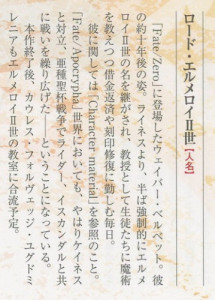 ロード・エルメロイⅡ世【人名】
『Fate/Zero』に登場したウェイバー・ベルベット。彼
の約十年後の姿。ライネスより、半ば強制的にエルメ
ロイⅡ世の名を継がされ、教授として生徒たちに魔術
を教えつつ借金返済や刻印修復に勤しむ毎日。
彼に関しては『Character material』を参照のこと。
『Fate/Apocrypha』世界においても、やはりケイネス
と対立、亜種聖杯戦争でライダー、イスカンダルと共
に戦いを繰り広げた――ということになっている。
本作終了後、カウレス・フォルヴェッジ・ユグドミ
レニアもエルメロイⅡ世の教室に合流予定。